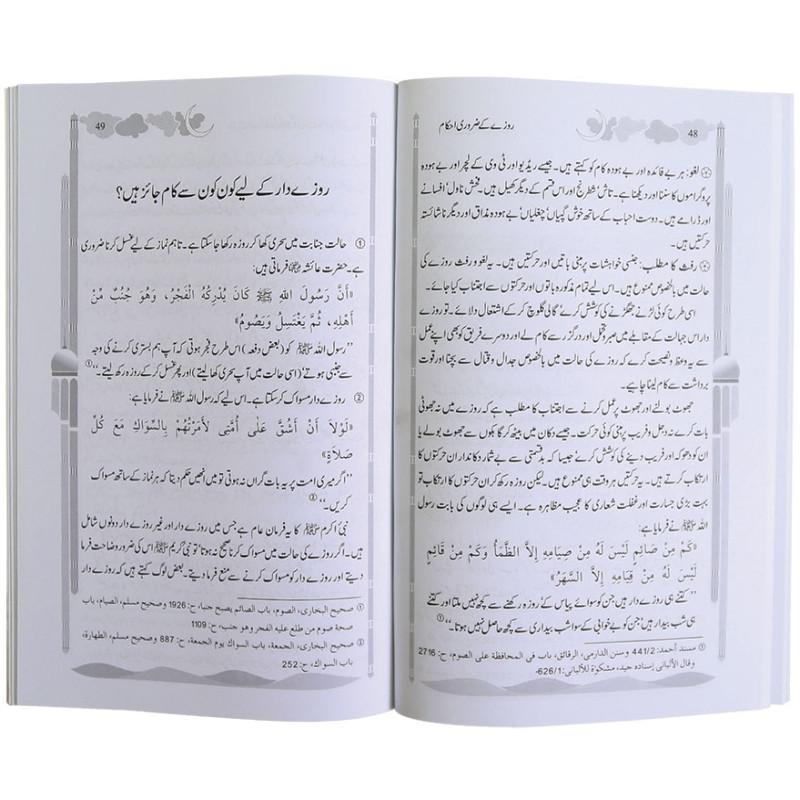 48
روزے کے ضروری احکام
لغو: ہر بے فائدہ اور بے ہودہ کام کو کہتے ہیں۔ جیسے ریڈیو اور ٹی وی کے لچر اور بے ہودہ
پروگراموں کا سننا اور دیکھنا ہے۔ تاش، شطرنج اور اس قسم کے دیگر کھیل ہیں۔ فحش ناول، افسانے
اور ڈرامے ہیں۔ دوست احباب کے ساتھ خوش گپیاں، چغلیاں، بے ہودہ مذاق اور دیگر ناشائستہ
حرکتیں ہیں۔
رفث کا مطلب: جنسی خواہشات پر مبنی باتیں اور حرکتیں ہیں۔ یہ لغو و رفث روزے کی
حالت میں بالخصوص ممنوع ہیں۔ اس لیے تمام مذکورہ باتوں اور حرکتوں سے اجتناب کیا جائے۔
اسی طرح کوئی لڑنے جھگڑنے کی کوشش کرے، گالی گلوچ کر کے اشتعال دلائے۔ تو روزے
دار اس جہالت کے مقابلے میں صبر و تحمل اور درگزر سے کام لے اور دوسرے فریق کو بھی اپنے عمل
سے یہ وعظ و نصیحت کرے کہ روزے کی حالت میں بالخصوص جدال و قتال سے بچنا اور قوت
برداشت سے کام لینا چاہیے۔
جھوٹ بولنے اور جھوٹ پر عمل کرنے سے اجتناب کا مطلب ہے کہ روزے میں نہ جھوٹی
بات کرے نہ دجل و فریب پر مبنی کوئی حرکت۔ جیسے دکان میں بیٹھ کر گاہکوں سے جھوٹ بولے یا
ان کو دھوکہ اور فریب دینے کی کوشش کرے، جیسا کہ بدقسمتی سے بے شمار دکاندار ان حرکتوں کا
ارتکاب کرتے ہیں۔ یہ حرکتیں ہر وقت ہی ممنوع ہیں۔ لیکن روزہ رکھ کر ان حرکتوں کا ارتکاب تو
بہت بڑی جسارت اور غفلت شعاری کا عجیب مظاہرہ ہے۔ ایسے ہی لوگوں کی بابت رسول
اللہ ﷺ نے فرمایا ہے:
«كَمْ مِنْ صَائِمٍ لَيْسَ لَهُ مِنْ صِيَامِهِ إِلاَّ الظَّمَأُ وَكَمْ مِنْ قَائِمٍ
لَيْسَ لَهُ مِنْ قِيَامِهِ إِلاَّ السَّهَرُ»
’’کتنے ہی روزے دار ہیں جن کو سوائے پیاس کے، روزہ رکھنے سے کچھ نہیں ملتا اور کتنے
ہی شب بیدار ہیں، جن کو بے خوابی کے سوا شب بیداری سے کچھ حاصل نہیں ہوتا۔‘‘①
① مسند أحمد: 441/2 وسنن الدارمي، الرقائق، باب في المحافظة على الصوم، ح: 2716
وقال الألباني إسناده جيد، مشكوة للألباني: 626/1-
49
روزے دار کے لیے کون کون سے کام جائز ہیں؟
① حالت جنابت میں سحری کھا کر روزہ رکھا جا سکتا ہے۔ تاہم نماز کے لیے غسل کرنا ضروری
ہے۔ حضرت عائشہ ؓ فرماتی ہیں:
«أَنَّ رَسُولَ اللهِ ﷺ كَانَ يُدْرِكُهُ الْفَجْرُ، وَهُوَ جُنُبٌ مِّنْ
أَهْلِهِ، ثُمَّ يَغْتَسِلُ وَيَصُومُ»
’’رسول اللہ ﷺ کو (بعض دفعہ) اس طرح فجر ہوتی کہ آپ ہم بستری کرنے کی وجہ
سے جنبی ہوتے، (اسی حالت میں آپ سحری کھا لیتے) اور پھر غسل کر کے روزہ رکھ لیتے۔‘‘①
② روزے دار مسواک کر سکتا ہے۔ اس لیے کہ رسول اللہ ﷺ نے فرمایا ہے:
«لَوْلاَ أَنْ أَشُقَّ عَلَى أُمَّتِي لأَمَرْتُهُمْ بِالسِّوَاكِ مَعَ كُلِّ
صَلاَةٍ»
’’اگر میری امت پر یہ بات گراں نہ ہوتی تو میں انھیں حکم دیتا کہ ہر نماز کے ساتھ مسواک
کریں۔‘‘②
نبیٔ اکرم ﷺ کا یہ فرمان عام ہے جس میں روزے دار اور غیر روزے دار دونوں شامل
ہیں۔ اگر روزے کی حالت میں مسواک کرنا صحیح نہ ہوتا تو نبی کریم ﷺ اس کی ضرور وضاحت فرما
دیتے اور روزے دار کو مسواک کرنے سے منع فرما دیتے۔ بعض لوگ کہتے ہیں کہ روزے دار
① صحيح البخاري، الصوم، باب الصائم يصبح جنبا، ح: 1926 وصحيح مسلم، الصيام، باب
صحة صوم من طلع عليه الفجر وهو جنب، ح: 1109
② صحيح البخاري، الجمعة، باب السواك يوم الجمعة، ح: 887 وصحيح مسلم، الطهارة،
باب السواك، ح: 252